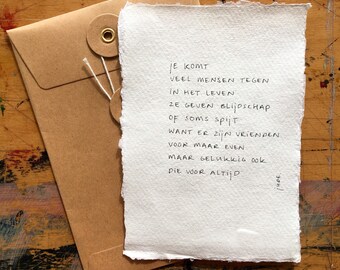 je komt
veel mensen tegen
in het leven
ze geven blijdschap
of soms spijt
want er zijn vrienden
voor maar even
maar gelukkig ook
die voor altijd